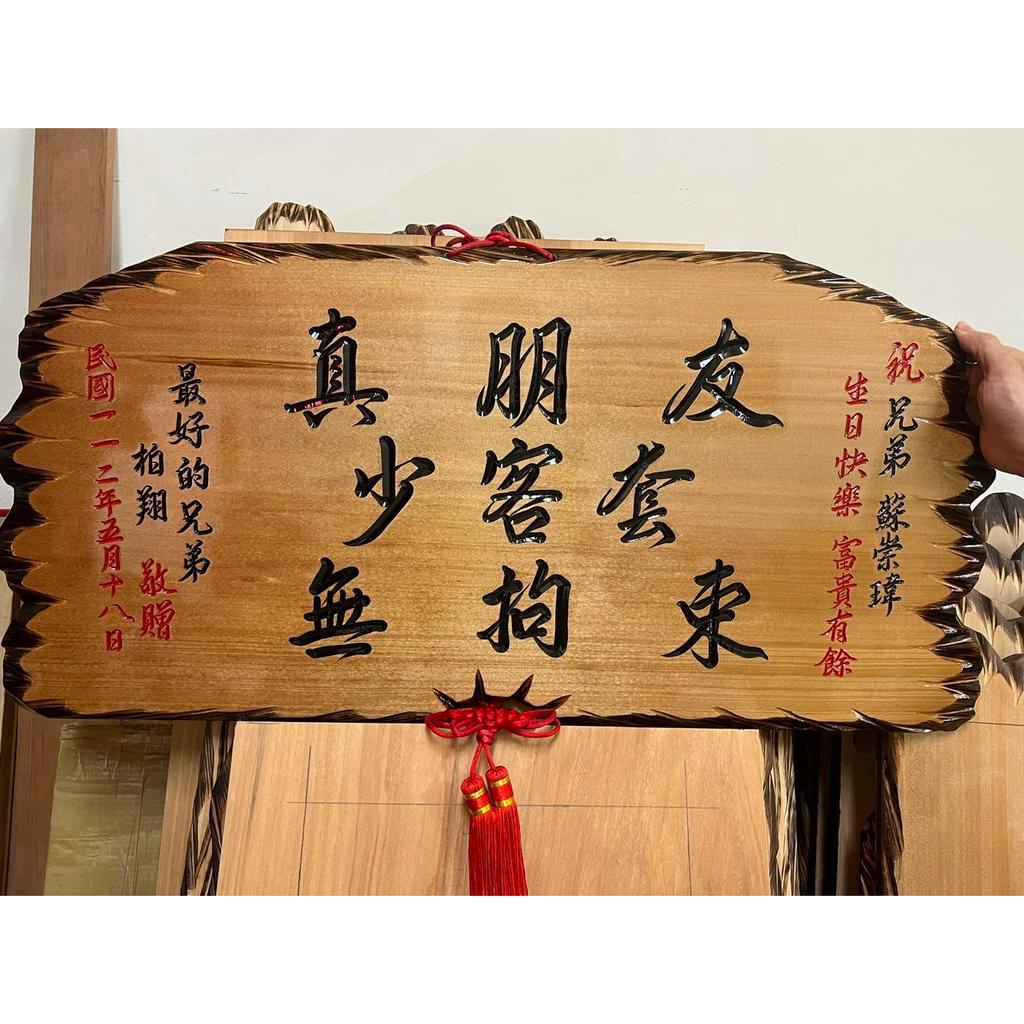 祝 兄弟 蘇崇瑋
生日快樂 富貴有餘
真朋友
少客套
無拘束
最好的兄弟
柏翔 敬贈
民國一一二年五月十八日